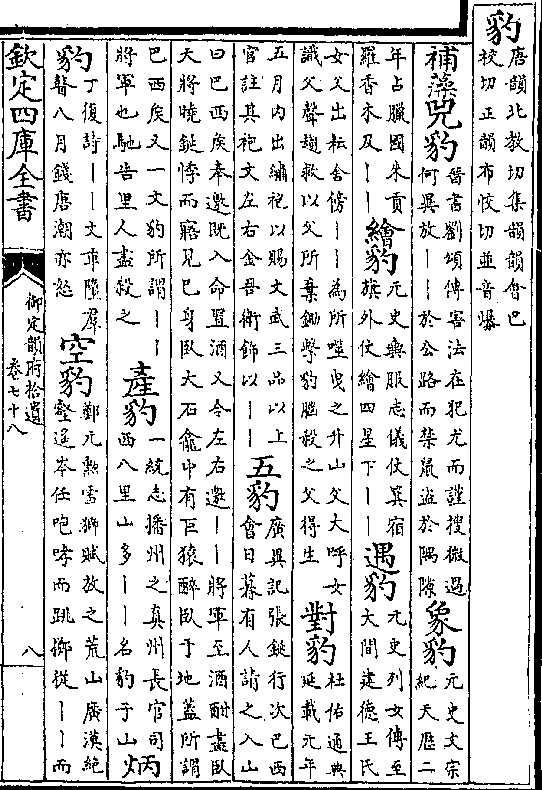 豹
唐韻北教切集韻韻會巴
校切正韻布恔切並音爆
補藻
兕豹
晉書劉頌傳害法在犯尤而謹搜微過
何異放——於公路而禁鼠盜於隅隙
象豹
元史文宗
紀天歷二
年占臘國來貢
羅香木及——
繪豹
元史輿服志儀仗箕宿
旗外仗繪四星下——
遇豹
元史列女傳至
大間建德王氏
女父出耘舍傍——為所噬曳之升山父大呼女
識父聲趨救以父所棄鋤擊豹腦殺之父得生
對豹
杜佑通典
延載元年
五月內出繡袍以賜文武三品以上
官註其袍文左右金吾衛飾以——
五豹
廣異記張鋋行次巴西
會日暮有人請之入山
曰巴西侯奉邀既入命置酒又令左右邀——將軍至酒酣盡臥
天將曉鋋悸而寤見巳身臥大石龕中有巨猿醉臥于地蓋所謂
巴西侯又一文豹所謂——
將軍也馳告里人盡殺之
產豹
一統志播州之真州長官司
西八里山多——名豹子山
炳
豹
丁復詩——文乖隱羣
聲八月錢唐潮亦怒
空豹
鄭元勲雪獅賦放之荒山廣漠絕
壑遥岑任咆哮而跳擲從——而
欽定四庫全書
御定韻府拾遺
卷七十八
八